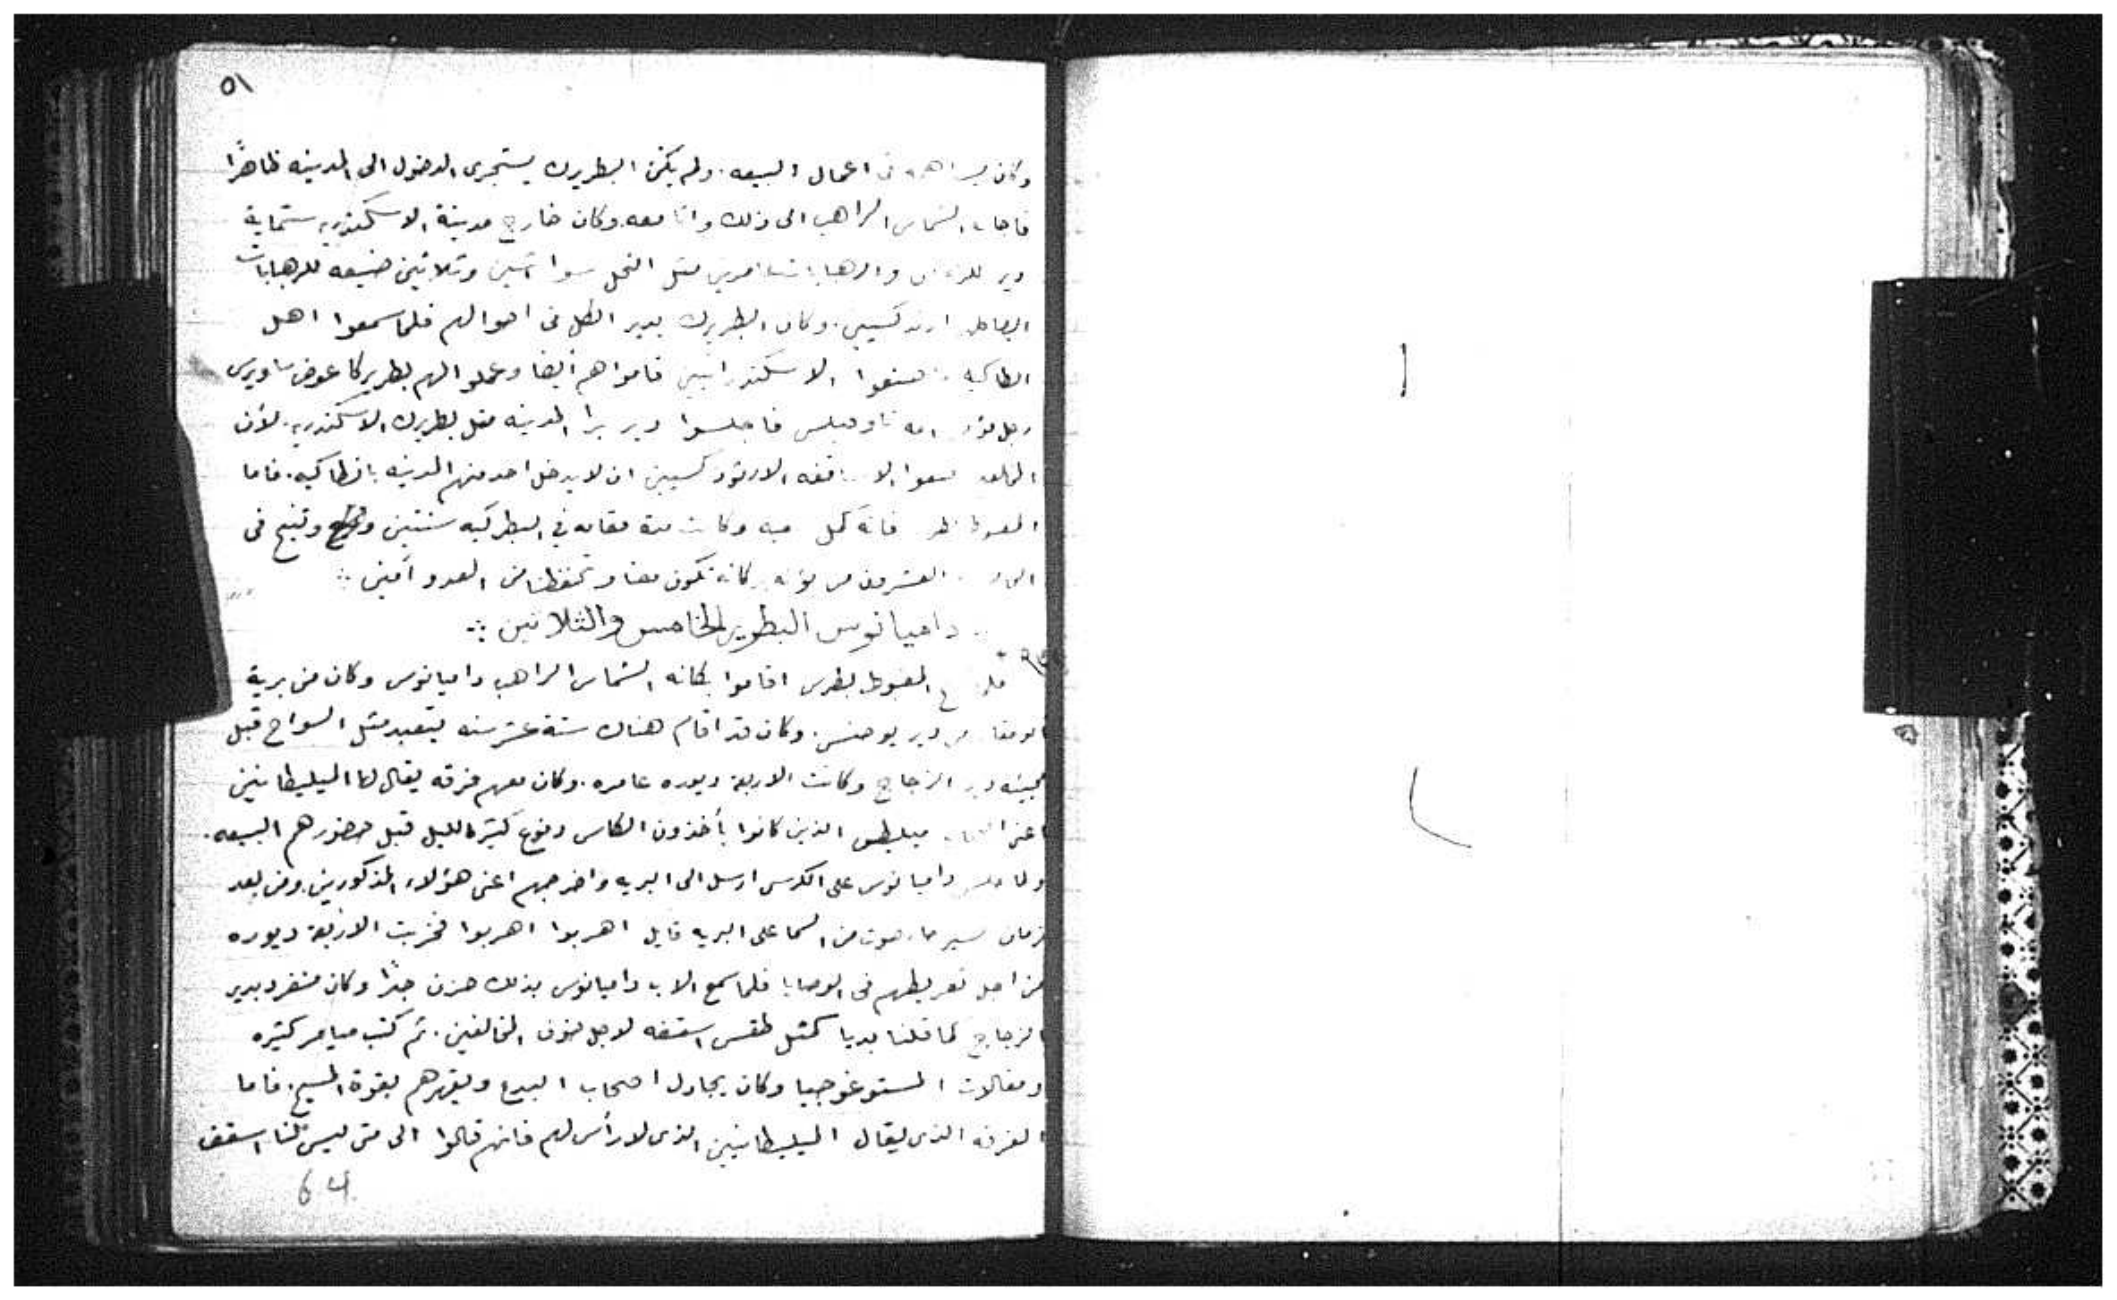 ٥١
وكان في اعمال البيعه. ولم يكن البطريرك يستجرى الدخول الى المدينه ظاهرًا
فاجاب الشماس الراهب الى ذلك وانا معه. وكان خارج مدينة الاسكندريه ستماية
دير مثل النحل سوا اثنين وثلاثين ضيعه للرهبابات
ارتدكسيين. وكان البطريرك يدير الكل فى احوالهم فلما سمعوا اهل
انطاكيه الاسكندرانيين قاموا هم أيضا وعملوا لهم بطريركا عوض ساويرس
رجل فاجلسوا دير برا المدينه مثل بطريرك الاسكندريه. لأن
الاساقفه الارتودكسيين ان لا يدخل احد منهم المدينه بانطاكيه. فاما
فانه كمل وكانت مدة مقامه في البطركيه سنتين وتنيح فى
العشرون من بؤنه بركاته تكون معنا وتحفظنا من العدو آمين
داميانوس البطريرك الخامس والثلاثين
المغبوط بطرس اقاموا مكانه الشماس الراهب داميانوس وكان من برية
ابو مقار من دير يوحنس. وكان قد اقام هناك ستة عشر سنه يتعبد مثل السواح قبل
مجيئه دير الزجاج وكانت الاربعة ديوره عامره. وكان معهم فرقه يقال لها الميليطانيين
اعنى ميليطس الذين كانوا يأخذون الكاس دفوع كثيره الليل قبل حضورهم البيعه.
ولما جلس داميانوس على الكرسى ارسل الى البريه واخرجهم اعنى هؤلاء المذكورين. ومن بعد
زمان يسير صار صوت من السما على البريه قايل اهربوا اهربوا فخربت الاربعة ديوره
من اجل تفريطهم فى الوصايا فلما سمع الاب داميانوس بذلك حزن جدًا وكان منفرد بدير
الزجاج كما قلنا بديا كمثل طقس اسقفه لاجل خوف المخالفين. ثم كتب ميامر كثيره
ومقالات المستوغوجيا وكان يجادل اصحاب البدع ويقهرهم بقوة المسيح. فاما
الفرقه الذى يقال الميليطانيين الذى لا رأس لهم فانهم قالوا الى متى ليس لنا اسقف
64